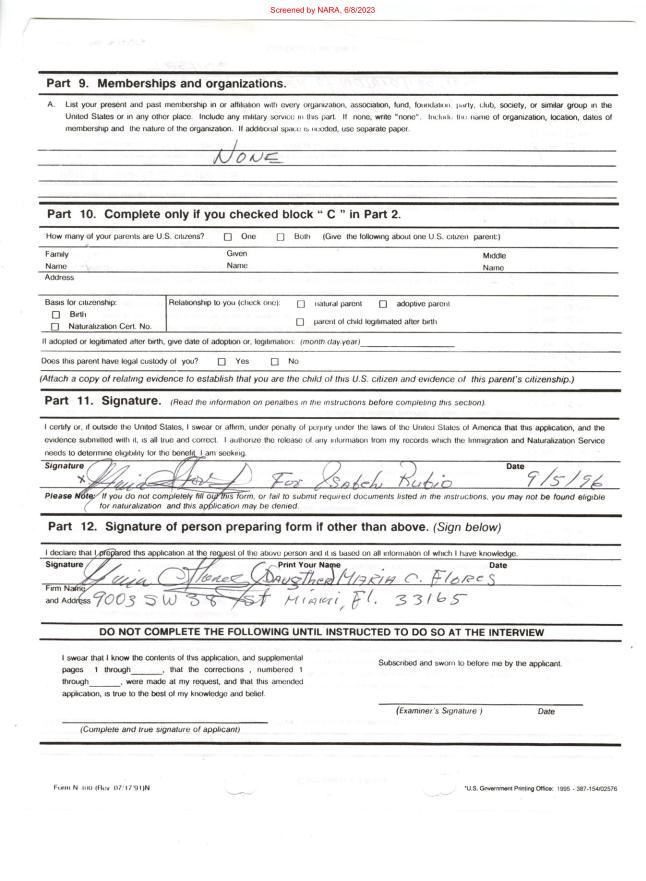 Screened by NARA, 6/8/2023
Part 9. Memberships and organizations.
A. List your present and past membership in or affiliation with every organization, association, fund, foundation, party, club, society, or similar group in the
United States or in any other place. Include any military service in this part. If none, write "none". Include the name of organization, location, dates of
membership and the nature of the organization. If additional space is needed, use separate paper.
NONE
Part 10. Complete only if you checked block " C " in Part 2.
How many of your parents are U.S. citizens? ☐ One ☐ Both (Give the following about one U.S. citizen parent:)
Family Given Middle
Name Name Name
Address
Basis for citizenship: Relationship to you (check one): ☐ natural parent ☐ adoptive parent
☐ Birth
☐ Naturalization Cert. No. ☐ parent of child legitimated after birth
If adopted or legitimated after birth, give date of adoption or, legitimation: (month-day-year)
Does this parent have legal custody of you? ☐ Yes ☐ No
(Attach a copy of relating evidence to establish that you are the child of this U.S. citizen and evidence of this parent's citizenship.)
Part 11. Signature. (Read the information on penalties in the instructions before completing this section).
I certify or, if outside the United States, I swear or affirm, under penalty of perjury under the laws of the United States of America that this application, and the
evidence submitted with it, is all true and correct. I authorize the release of any information from my records which the Immigration and Naturalization Service
needs to determine eligibility for the benefit I am seeking.
Signature Date
x For Rubio 9/5/96
Please Note: If you do not completely fill out this form, or fail to submit required documents listed in the instructions, you may not be found eligible
for naturalization and this application may be denied.
Part 12. Signature of person preparing form if other than above. (Sign below)
I declare that I prepared this application at the request of the above person and it is based on all information of which I have knowledge.
Signature Print Your Name Date
(Daughter) MARIA C. FLORES
Firm Name
and Address 9003 SW 38 St Miami, Fl. 33165
DO NOT COMPLETE THE FOLLOWING UNTIL INSTRUCTED TO DO SO AT THE INTERVIEW
I swear that I know the contents of this application, and supplemental
pages 1 through______, that the corrections , numbered 1
through______, were made at my request, and that this amended
application, is true to the best of my knowledge and belief.
Subscribed and sworn to before me by the applicant.
(Examiner's Signature ) Date
(Complete and true signature of applicant)
Form N-400 (Rev. 07/17/91)N
*U.S. Government Printing Office: 1995 - 387-154/02576